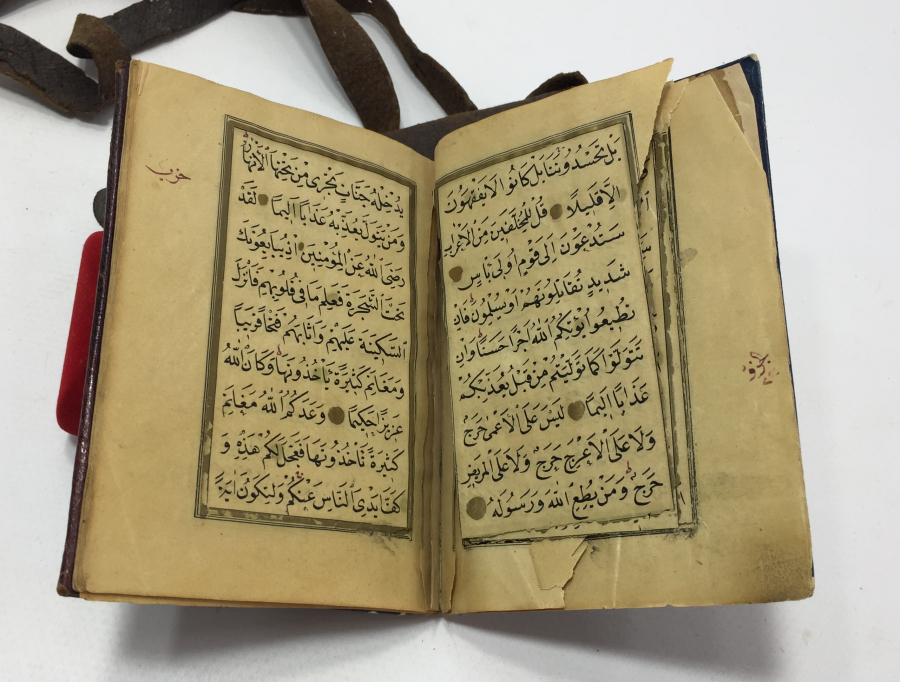 بَلْ تَحْسُدُونَنَا بَلْ كَانُوا لَا يَفْقَهُونَ
اِلَّا قَلِيلًا قُلْ لِلْمُخَلَّفِينَ مِنَ الْاَعْرَابِ
سَتُدْعَوْنَ اِلٰى قَوْمٍ اُولِى بَاْسٍ
شَدِيدٍ تُقَاتِلُونَهُمْ اَوْ يُسْلِمُونَ فَاِنْ
تُطِيعُوا يُؤْتِكُمُ اللّٰهُ اَجْرًا حَسَنًا وَاِنْ
تَتَوَلَّوْا كَمَا تَوَلَّيْتُمْ مِنْ قَبْلُ يُعَذِّبْكُمْ
عَذَابًا اَلِيمًا لَيْسَ عَلَى الْاَعْمٰى حَرَجٌ
وَلَا عَلَى الْاَعْرَجِ حَرَجٌ وَلَا عَلَى الْمَرِيضِ
حَرَجٌ وَمَنْ يُطِعِ اللّٰهَ وَرَسُولَهُ
يُدْخِلْهُ جَنَّاتٍ تَجْرِى مِنْ تَحْتِهَا الْاَنْهَارُ
وَمَنْ يَتَوَلَّ يُعَذِّبْهُ عَذَابًا اَلِيمًا لَقَدْ
رَضِىَ اللّٰهُ عَنِ الْمُؤْمِنِينَ اِذْ يُبَايِعُونَكَ
تَحْتَ الشَّجَرَةِ فَعَلِمَ مَا فِى قُلُوبِهِمْ فَاَنْزَلَ
السَّكِينَةَ عَلَيْهِمْ وَاَثَابَهُمْ فَتْحًا قَرِيبًا
وَمَغَانِمَ كَثِيرَةً يَاْخُذُونَهَا وَكَانَ اللّٰهُ
عَزِيزًا حَكِيمًا وَعَدَكُمُ اللّٰهُ مَغَانِمَ
كَثِيرَةً تَاْخُذُونَهَا فَعَجَّلَ لَكُمْ هٰذِهِ وَ
كَفَّ اَيْدِىَ النَّاسِ عَنْكُمْ وَلِتَكُونَ اٰيَةً
حزب